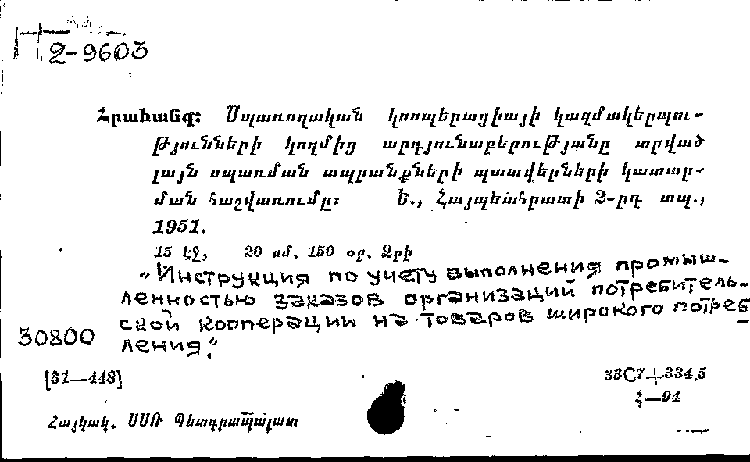 2-9603
Հրահանգ: Սպառողական կոոպերացիայի կազմակերպու-
թյունների կողմից արդյունաբերությանը տրված
լայն սպառման ապրանքների պատվերների կատար-
ման հաշվառումը: Ե., Հայպետհրատի 2-րդ տպ.,
1951.
15 էջ, 20 սմ, 150 օր, Ձրի
„Инструкция по учету выполнения промыш-
ленностью заказов организаций потребитель-
ской кооперации на товаров широкого потреб
30800 ления“
[51—448] 33С7+334,5
Հ—94
Հայկակ. ՍՍՌ Պետգրապալատ